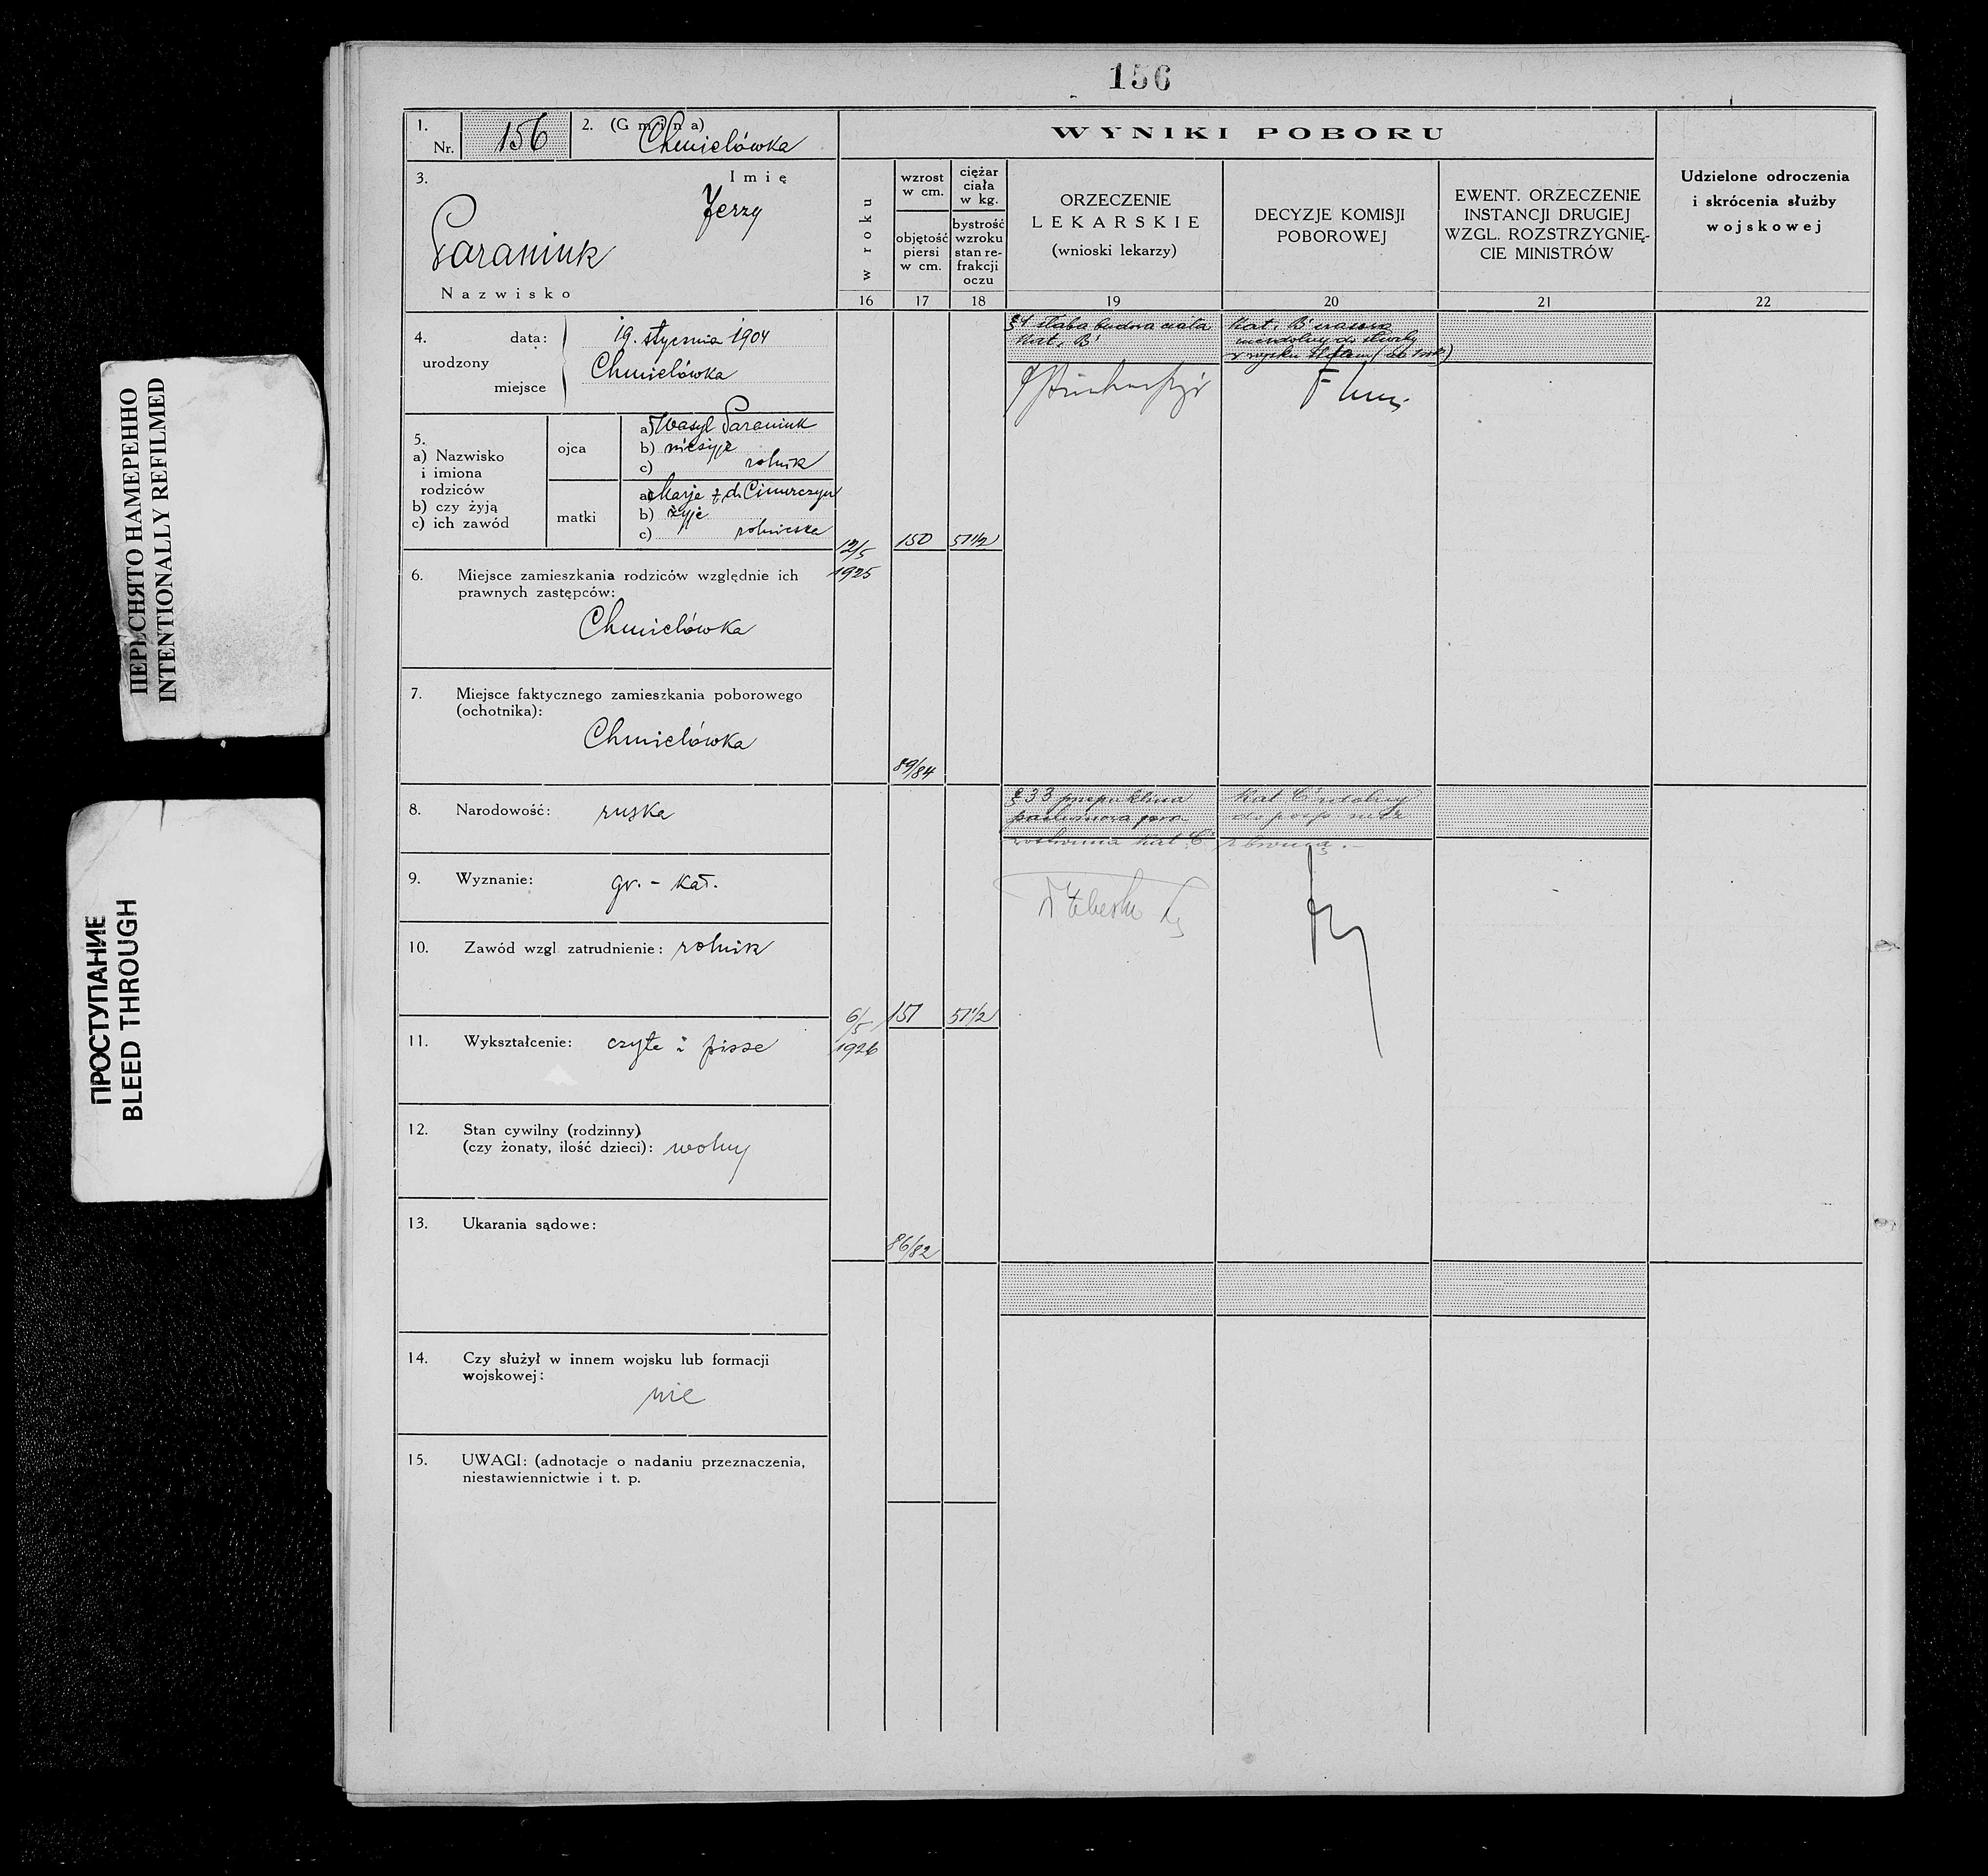 ПЕРЕСНЯТО НАМЕРЕННО
INTENTIONALLY REFILMED
ПРОСТУПАНИЕ
BLEED THROUGH
156
1.
Nr. 156
2. (Gmina)
Chmielówka
3.
Imię
Jerzy
Paraniuk
Nazwisko
4. data: 19. stycznia 1904
urodzony
miejsce Chmielówka
5.
a) Nazwisko
i imiona
rodziców
b) czy żyją
c) ich zawód
ojca
a) Wasyl Paraniuk
b) nieżyje
c) rolnik
matki
a) Marja z d.
b) żyje
c) rolniczka
6. Miejsce zamieszkania rodziców względnie ich
prawnych zastępców:
Chmielówka
7. Miejsce faktycznego zamieszkania poborowego
(ochotnika):
Chmielówka
8. Narodowość: ruska
9. Wyznanie: gr. - kat.
10. Zawód wzgl zatrudnienie: rolnik
11. Wykształcenie: czyta i pisze
12. Stan cywilny (rodzinny)
(czy żonaty, ilość dzieci): wolny
13. Ukarania sądowe:
14. Czy służył w innem wojsku lub formacji
wojskowej:
nie
15. UWAGI: (adnotacje o nadaniu przeznaczenia,
niestawiennictwie i t. p.
WYNIKI POBORU
w roku
wzrost
w cm.
objętość
piersi
w cm.
ciężar
ciała
w kg.
bystrość
wzroku
stan re-
frakcji
oczu
ORZECZENIE
LEKARSKIE
(wnioski lekarzy)
DECYZJE KOMISJI
POBOROWEJ
EWENT. ORZECZENIE
INSTANCJI DRUGIEJ
WZGL. ROZSTRZYGNIĘ-
CIE MINISTRÓW
Udzielone odroczenia
i skrócenia służby
wojskowej
16 17 18 19 20 21 22
12/5
1925
150
51 1/2
89/84
§4 słaba budowa ciała
Kat. B'
Kat. B'
6/5
1926
151
51 1/2
86/82
§33 przepuklina
pachwinowa
Kat. C
Kat C zdolny
do posp. rusz
z bronią.